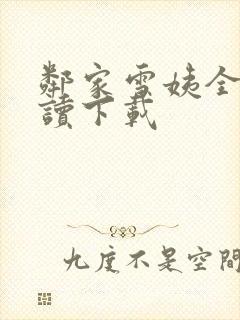 鄰家雪姨全
讀下載
九度不是空間